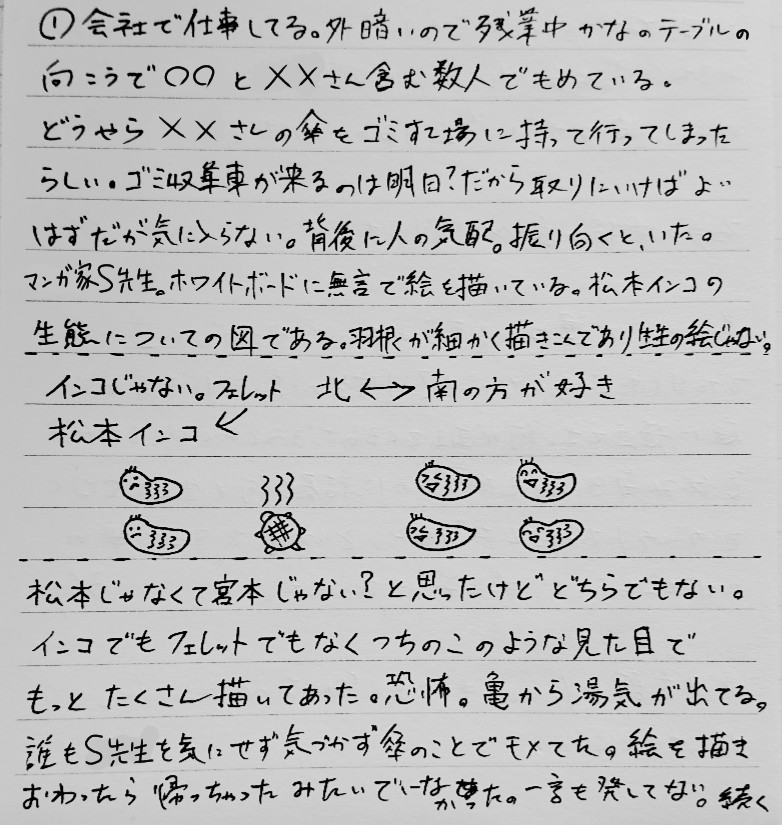 ①会社で仕事してる。外暗いので残業中かな。テーブルの
向こうで〇〇と××さん含む数人でもめている。
どうやら××さんの傘をゴミすて場に持って行ってしまった
らしい。ゴミ収集車が来るのは明日?だから取りにいけばよい
はずだが気に入らない。背後に人の気配。振り向くと、いた。
マンガ家S先生。ホワイトボードに無言で絵を描いている。松本インコの
生態についての図である。羽根が細かく描きこんであり先生の絵じゃない。
インコじゃない。フェレット 北←→南の方が好き
松本インコ↙
松本じゃなくて宮本じゃない?と思ったけどどちらでもない。
インコでもフェレットでもなくつちのこのような見た目で
もっとたくさん描いてあった。恐怖。亀から湯気が出てる。
誰もS先生を気にせず気づかず傘のことでモメてた。絵を描き
おわったら帰っちゃったみたいでいなかった。一言も発してない。続く